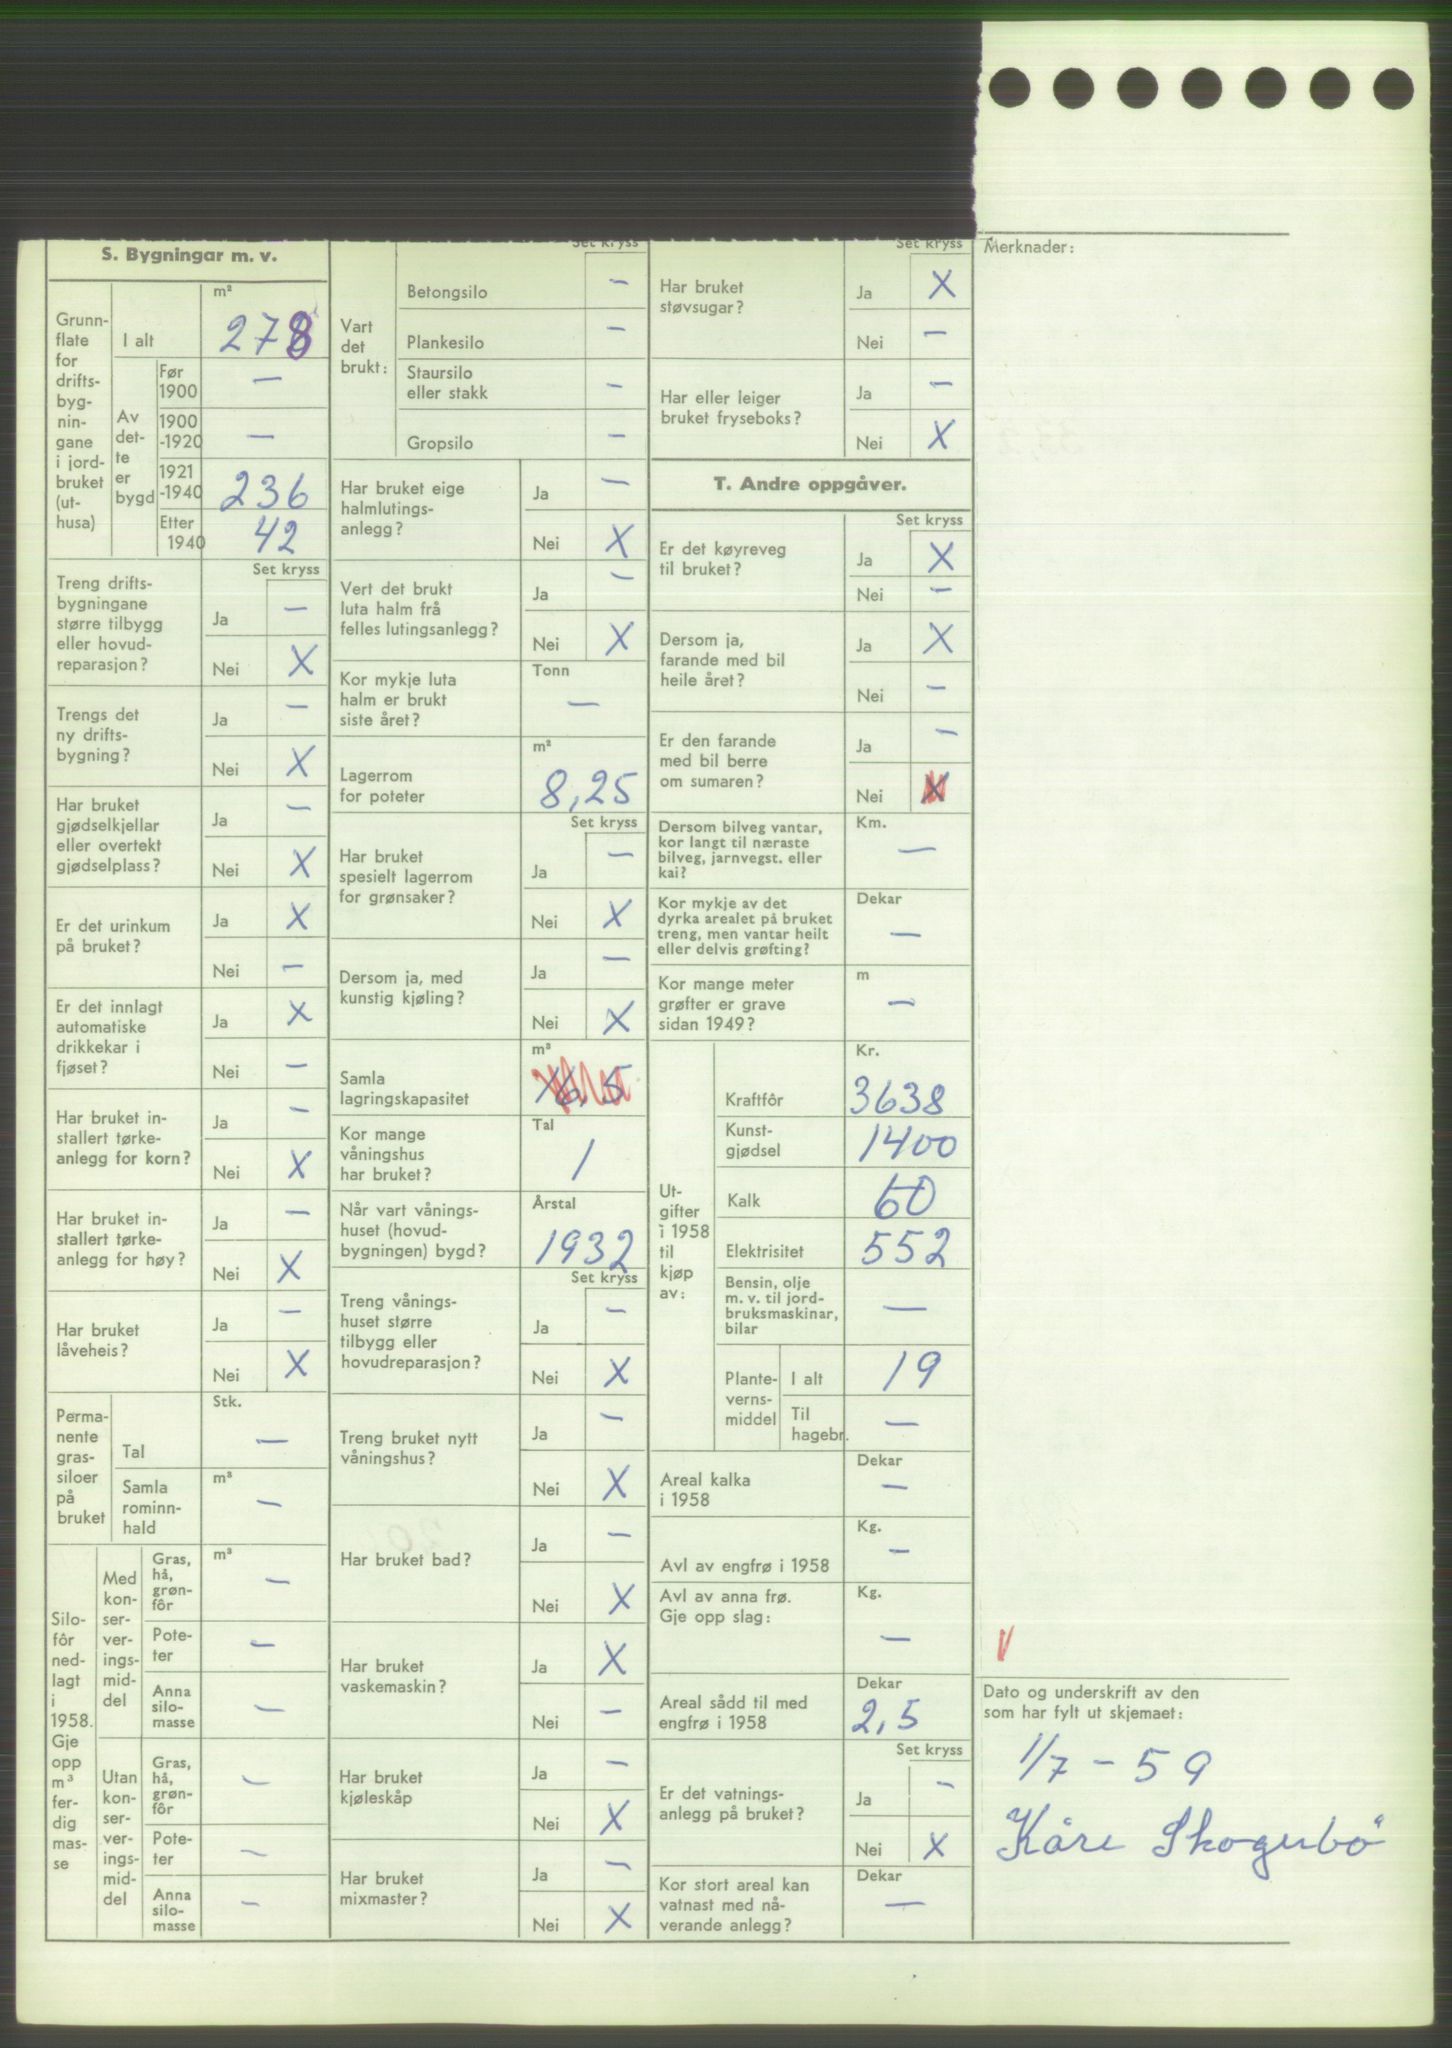 S. Bygningar m. v.
Grunn-
flate
for
drifts-
byg-
nin-
gane
i jord-
bruket
(ut-
husa)
m²
I alt 278
Av
det-
te
er
bygd
Før
1900 —
1900
-1920 —
1921
-1940 236
Etter
1940 42
Set kryss
Treng drifts-
bygningane
større tilbygg
eller hovud-
reparasjon?
Ja —
Nei X
Trengs det
ny drifts-
bygning?
Ja —
Nei X
Har bruket
gjødselkjellar
eller overtekt
gjødselplass?
Ja —
Nei X
Er det urinkum
på bruket?
Ja X
Nei —
Er det innlagt
automatiske
drikkekar i
fjøset?
Ja X
Nei —
Har bruket in-
stallert tørke-
anlegg for korn?
Ja —
Nei X
Har bruket in-
stallert tørke-
anlegg for høy?
Ja —
Nei X
Har bruket
låveheis?
Ja —
Nei X
Perma-
nente
gras-
siloer
på
bruket
Stk.
Tal —
m³
Samla
rominn-
hald —
Silo-
fôr
ned-
lagt
i
1958.
Gje
opp
m³
fer-
dig
mas-
se
Med
kon-
ser-
ver-
ings-
mid-
del
m³
Gras,
hå,
grøn-
fôr —
Pote-
ter —
Anna
silo-
masse —
Utan
kon-
ser-
ver-
ings-
mid-
del
Gras,
hå,
grøn-
fôr —
Pote-
ter —
Anna
silo-
masse —
Set kryss
Vart
det
brukt:
Betongsilo —
Plankesilo —
Staursilo
eller stakk —
Gropsilo —
Har bruket eige
halmlutings-
anlegg?
Ja —
Nei X
Vert det brukt
luta halm frå
felles lutingsanlegg?
Ja —
Nei X
Kor mykje luta
halm er brukt
siste året?
Tonn
—
Lagerrom
for poteter
m²
8,25
Set kryss
Har bruket
spesielt lagerrom
for grønsaker?
Ja —
Nei X
Dersom ja, med
kunstig kjøling?
Ja —
Nei X
Samla
lagringskapasitet
m³
Kor mange
våningshus
har bruket?
Tal
1
Når vart vånings-
huset (hovud-
bygningen) bygd?
Årstal
1932
Set kryss
Treng vånings-
huset større
tilbygg eller
hovudreparasjon?
Ja —
Nei X
Treng bruket nytt
våningshus?
Ja —
Nei X
Har bruket bad?
Ja —
Nei X
Har bruket
vaskemaskin?
Ja X
Nei —
Har bruket
kjøleskåp
Ja —
Nei X
Har bruket
mixmaster?
Ja —
Nei X
Set kryss
Har bruket
støvsugar?
Ja X
Nei —
Har eller leiger
bruket fryseboks?
Ja —
Nei X
T. Andre oppgåver.
Set kryss
Er det køyreveg
til bruket?
Ja X
Nei —
Dersom ja,
farande med bil
heile året?
Ja X
Nei —
Er den farande
med bil berre
om sumaren?
Ja —
Nei X
Dersom bilveg vantar,
kor langt til næraste
bilveg, jarnvegst. eller
kai?
Km.
—
Kor mykje av det
dyrka arealet på bruket
treng, men vantar heilt
eller delvis grøfting?
Dekar
—
Kor mange meter
grøfter er grave
sidan 1949?
m
—
Ut-
gifter
i 1958
til
kjøp
av:
Kr.
Kraftfôr 3638
Kunst-
gjødsel 1400
Kalk 60
Elektrisitet 552
Bensin, olje
m. v. til jord-
bruksmaskinar,
bilar —
Plante-
verns-
middel
I alt 19
Til
hagebr. —
Areal kalka
i 1958
Dekar
—
Avl av engfrø i 1958
Kg.
—
Avl av anna frø.
Gje opp slag:
Kg.
—
Areal sådd til med
engfrø i 1958
Dekar
2,5
Set kryss
Er det vatnings-
anlegg på bruket?
Ja —
Nei X
Kor stort areal kan
vatnast med nå-
verande anlegg?
Dekar
—
Merknader:
V
Dato og underskrift av den
som har fylt ut skjemaet:
1/7 - 59
Kåre Skogerbö